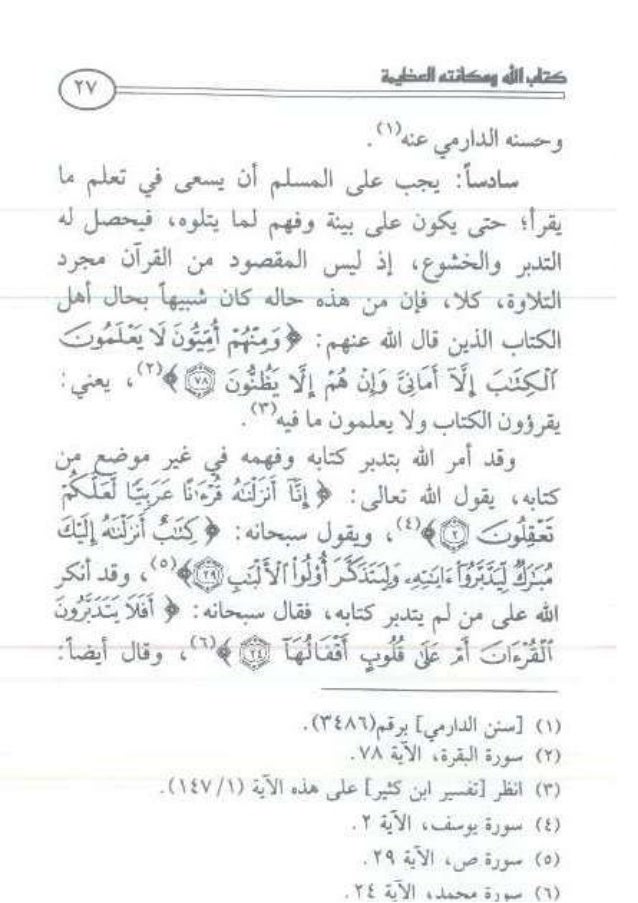 كتاب الله ومكانته العظيمة
٢٧
وحسنه الدارمي عنه(١).
سادساً: يجب على المسلم أن يسعى في تعلم ما
يقرأ؛ حتى يكون على بينة وفهم لما يتلوه، فيحصل له
التدبر والخشوع، إذ ليس المقصود من القرآن مجرد
التلاوة، كلا، فإن من هذه حاله كان شبيهاً بحال أهل
الكتاب الذين قال الله عنهم: ﴿وَمِنْهُمْ أُمِّيُّونَ لَا يَعْلَمُونَ
ٱلْكِتَٰبَ إِلَّآ أَمَانِىَّ وَإِنْ هُمْ إِلَّا يَظُنُّونَ ٧٨﴾(٢)، يعني:
يقرؤون الكتاب ولا يعلمون ما فيه(٣).
وقد أمر الله بتدبر كتابه وفهمه في غير موضع من
كتابه، يقول الله تعالى: ﴿إِنَّآ أَنزَلْنَٰهُ قُرْءَٰنًا عَرَبِيًّا لَّعَلَّكُمْ
تَعْقِلُونَ ٢﴾(٤)، ويقول سبحانه: ﴿كِتَٰبٌ أَنزَلْنَٰهُ إِلَيْكَ
مُبَٰرَكٌ لِّيَدَّبَّرُوٓا۟ ءَايَٰتِهِۦ وَلِيَتَذَكَّرَ أُو۟لُوا۟ ٱلْأَلْبَٰبِ ٢٩﴾(٥)، وقد أنكر
الله على من لم يتدبر كتابه، فقال سبحانه: ﴿أَفَلَا يَتَدَبَّرُونَ
ٱلْقُرْءَانَ أَمْ عَلَىٰ قُلُوبٍ أَقْفَالُهَآ ٢٤﴾(٦)، وقال أيضاً:
(١) [سنن الدارمي] برقم(٣٤٨٦).
(٢) سورة البقرة، الآية ٧٨.
(٣) انظر [تفسير ابن كثير] على هذه الآية (١/ ١٤٧).
(٤) سورة يوسف، الآية ٢.
(٥) سورة ص، الآية ٢٩.
(٦) سورة محمد، الآية ٢٤.